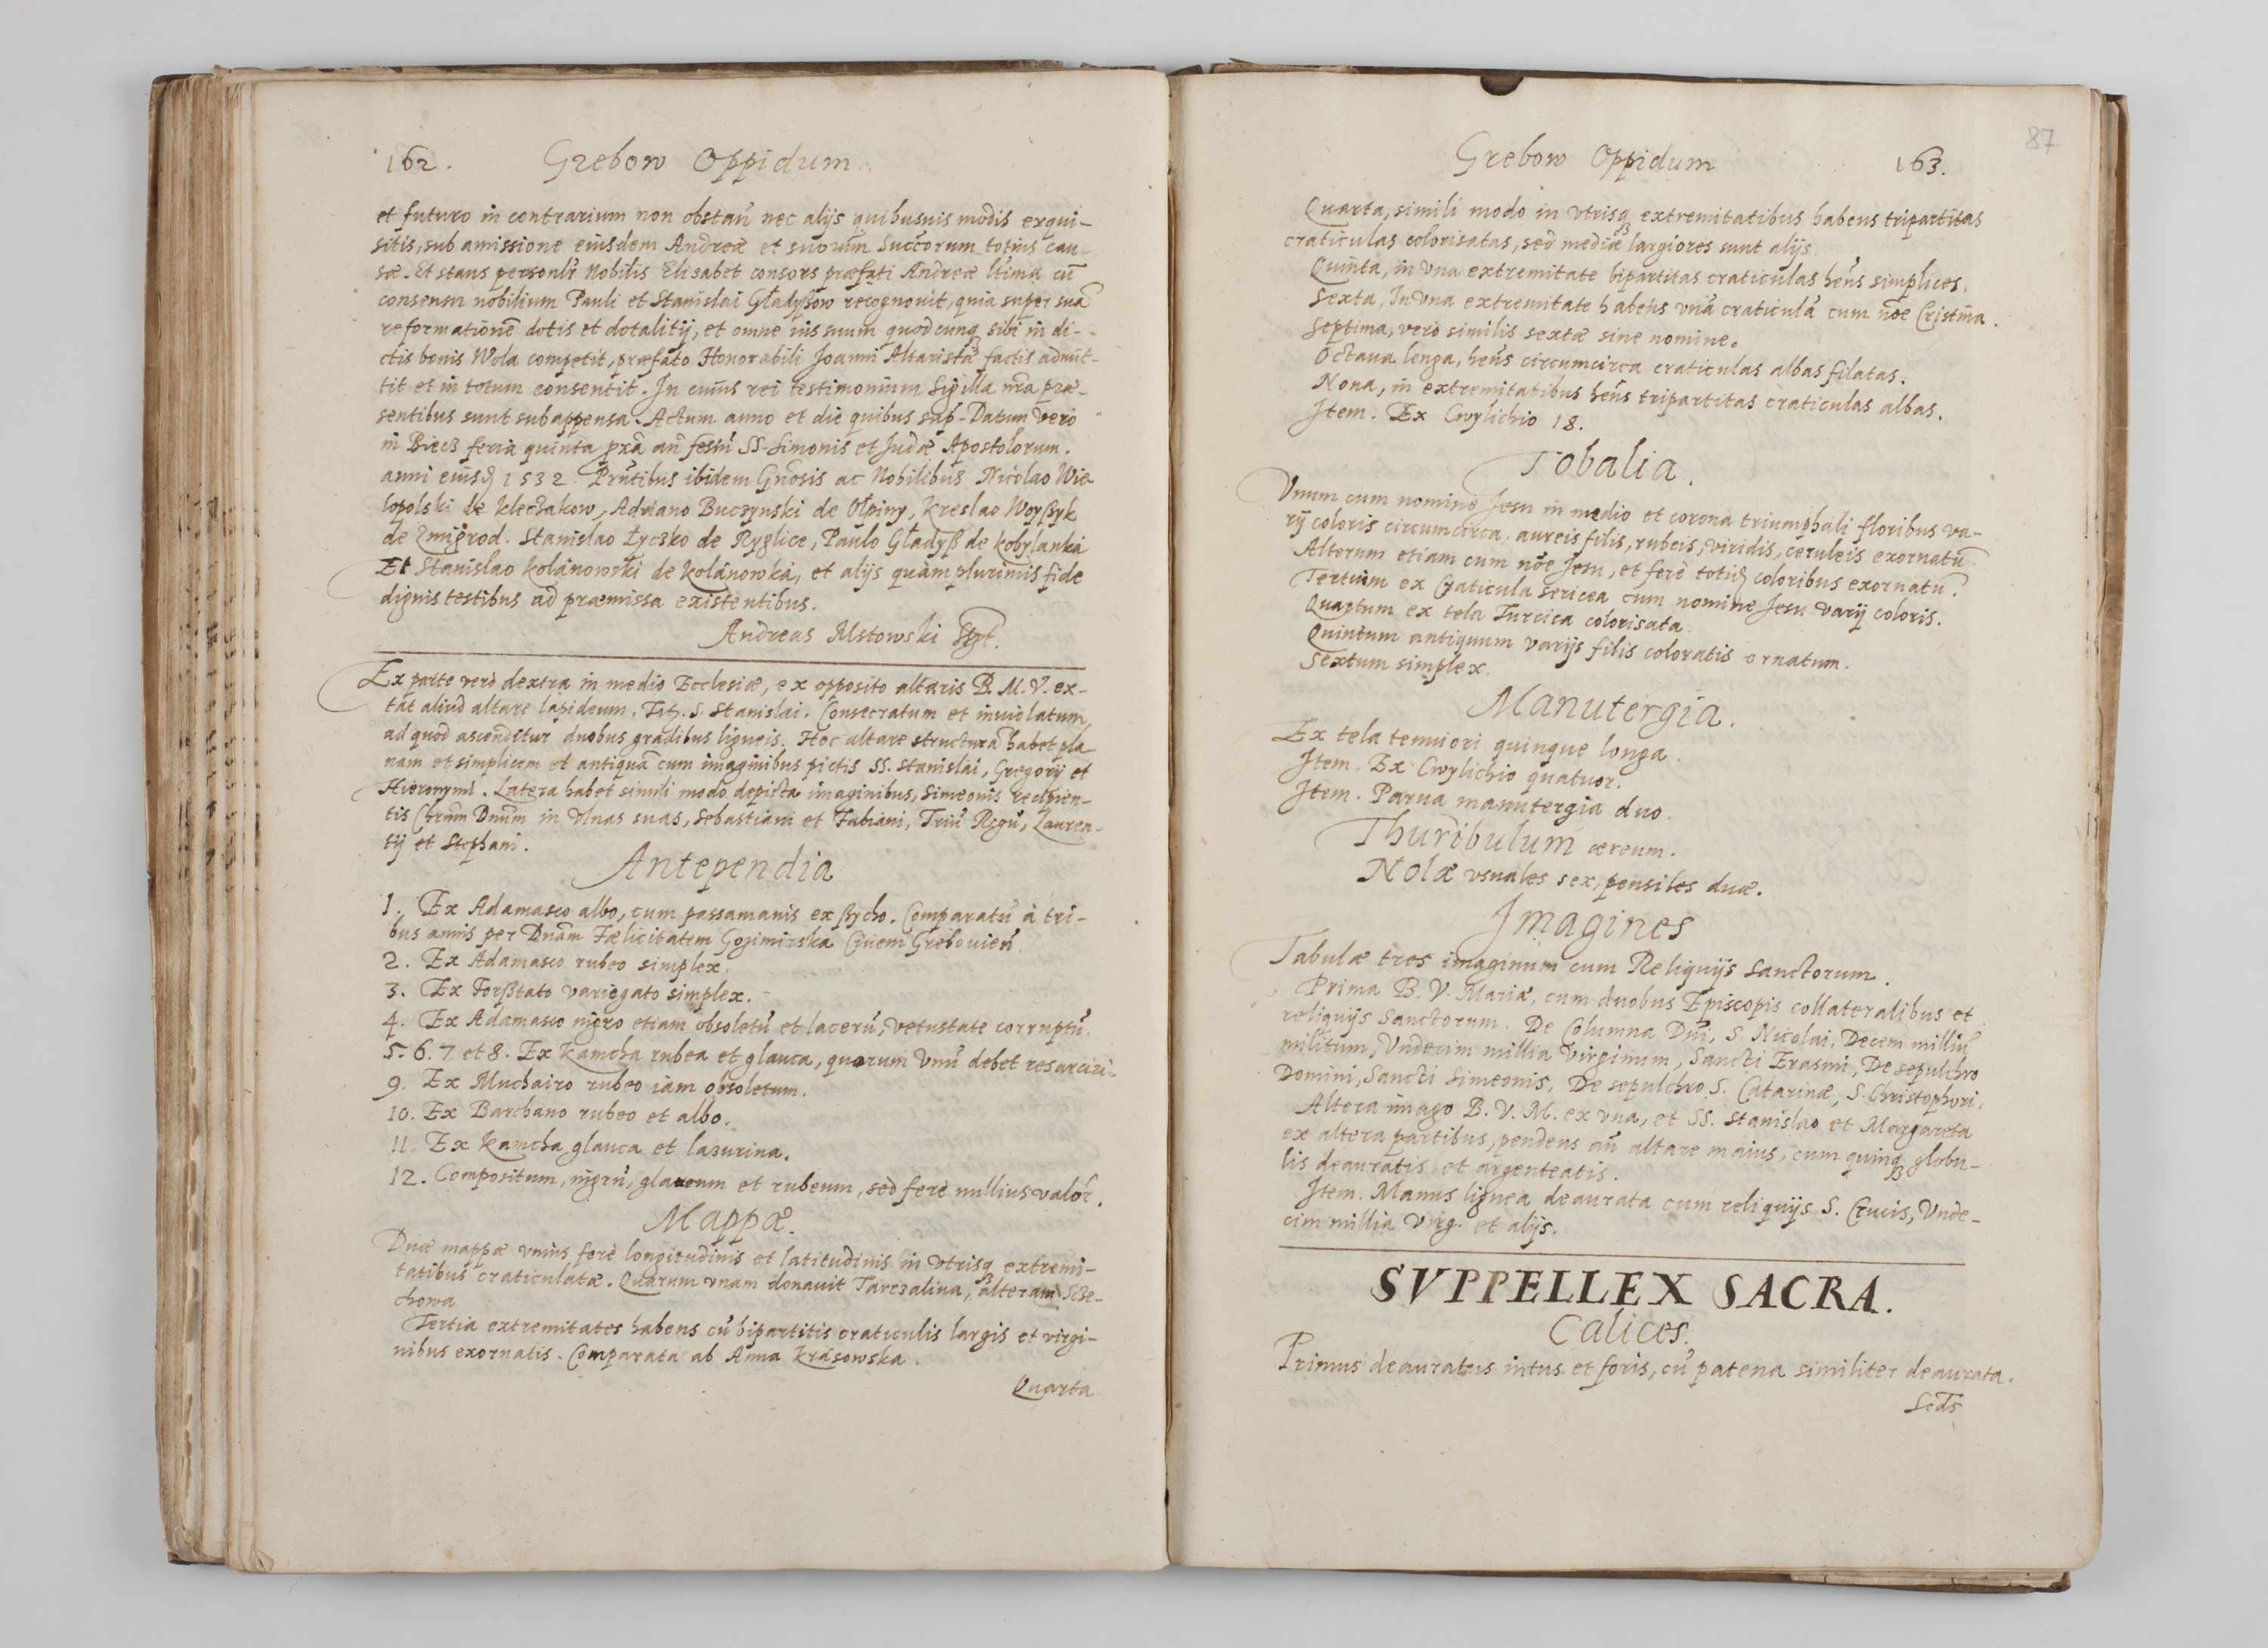 162. Grebow Oppidum
et futuro in contrarium non obstan̄ nec alijs quibusuis modis exqui-
sitis, sub amissione eiusdem Andreæ et suorum Succorum totius cau-
sæ. Et stans personlr̄ Nobilis Elisabet consors præfati Andreæ ltima cū
consensu nobilium Pauli et Stanislai Gładyßow recognouit, quia super suā
reformationē dotis et dotalitij, et omne ius suum quodcunq̨ sibi in di-
ctis bonis Wola competit, præfato Honorabili Joanni Altaristæ factis admit-
tit et in totum consentit. In cuius rei testimonium Sigilla nr̄a præ-
sentibus sunt subappensa. Actum anno et die quibus sup. Datum vero
in Biecz feria quinta pxā an̄ festū SS. Simonis et Judæ Apostolorum.
anni eiusd 1532. Prn̄tibus ibidem Gn̄osis ac Nobilibus Nicolao Wie-
lopolski de kleczakow, Adriano Buczynski de Ołpiny, Kreslao Woyßyk
de Zmigrod. Stanislao Łyczko de Ryglice, Paulo Gładyß de kobylanka
Et Stanislao kolanowski de kolanowka, et alijs quàm plurimis fide
dignis testibus ad præmissa existentibus.
Andreas Mstowski Sspt.
Ex parte verò dextra in medio Ecclesiæ, ex opposito altaris B. M. V. ex-
tat aliud altare lapideum, Tit. S. Stanislai. Consecratum et inuiolatum,
ad quod ascenditur duobus gradibus ligneis. Hoc altare structurā habet pla-
nam et simplicem et antiquā cum imaginibus pictis SS. Stanislai, Gregorij et
Hieronymi. Latera habet simili modo depicta imaginibus, Simeonis recipien-
tis Chrm̄ Dnūm in vlnas suas, Sebastiani et Fabiani, Triū Regū, Lauren-
tij et Stephani.
Antependia
1. Ex Adamasco albo, cum passamanis ex ßycho. Comparatū à tri-
bus annis per Dnām Fælicitatem Gozimirska Ciuem Grebouien̄.
2. Ex Adamasco rubeo simplex.
3. Ex Forßtato variegato simplex.
4. Ex Adamasco nigro etiam obsoletū et lacerū, vetustate corruptū.
5. 6. 7 et 8. Ex kamcha rubea et glauca, quorum vnū debet resarciri.
9. Ex Muchairo rubeo iam obsoletum.
10. Ex Barchano rubeo et albo.
11. Ex kamcha glauca et lazurina.
12. Compositum, nigrū, glaucum et rubeum, sed ferè nullius valor̄.
Mappæ.
Duæ mappæ vnius ferè longitudinis et latitudinis in vtrisq̨ extremi-
tatibus craticulatæ. Quarum vnam donauit Tarczalina, alteram Scze-
chowa
Tertia extremitates habens cū bipartitis craticulis largis et virgi-
nibus exornatis. Comparata ab Anna Krasowska.
Quarta
87
Grebow Oppidum 163.
Quarta, simili modo in vtrisq̨ extremitatibus habens tripartitas
craticulas colorisatas, sed mediæ largiores sunt alijs.
Quinta, in vna extremitate bipartitas craticulas hēns simplices.
Sexta, In vna extremitate habens vnā craticulā cum nōe Cristina.
Septima, verò similis sextæ sine nomine.
Octaua longa, hēns circumcirca craticulas albas filatas.
Nona, in extremitatibus hēns tripartitas craticulas albas.
Item. Ex Cwylichio 18.
Tobalia.
Vnum cum nomine Jesu in medio et corona triumphali floribus va-
rij coloris circumcirca, aureis filis, rubeis, viridis, ceruleis exornatū.
Alterum etiam cum nōe Jesu, et ferè totid coloribus exornatū.
Tertium ex Craticula sericea cum nomine Jesu varij coloris.
Quartum ex tela Turcica colorisata.
Quintum antiquum varijs filis coloratis ornatum.
Sextum simplex.
Manutergia.
Ex tela tenuiori quinque longa.
Item. Ex Cwylichio quatuor.
Item. Parua manutergia duo.
Thuribulum æreum.
Nolæ vsuales sex, pensiles duæ.
Imagines
Tabulæ tres imaginum cum Reliquijs Sanctorum.
Prima B. V. Mariæ, cum duobus Episcopis collateralibus et
reliquijs Sanctorum. De Columna Dn̄i, S. Nicolai, Decem milliū
militum, Vndecim millia Virginum, Sancti Erasmi, De sepulchro
Domini, Sancti Simeonis, De sepulchro S. Catarinæ, S. Christophori,
Altera imago B. V. M. ex vna, et SS. Stanislao et Margareta
ex altera partibus, pendens an̄ altare maius, cum quinq̨ globu-
lis deauratis et argenteatis.
Item. Manus lignea deaurata cum reliquijs S. Crucis, Vnde-
cim millia Virg. et alijs.
SVPPELLEX SACRA.
Calices.
Primus deauratus intus et foris, cū patena similiter deaurata.
Scds